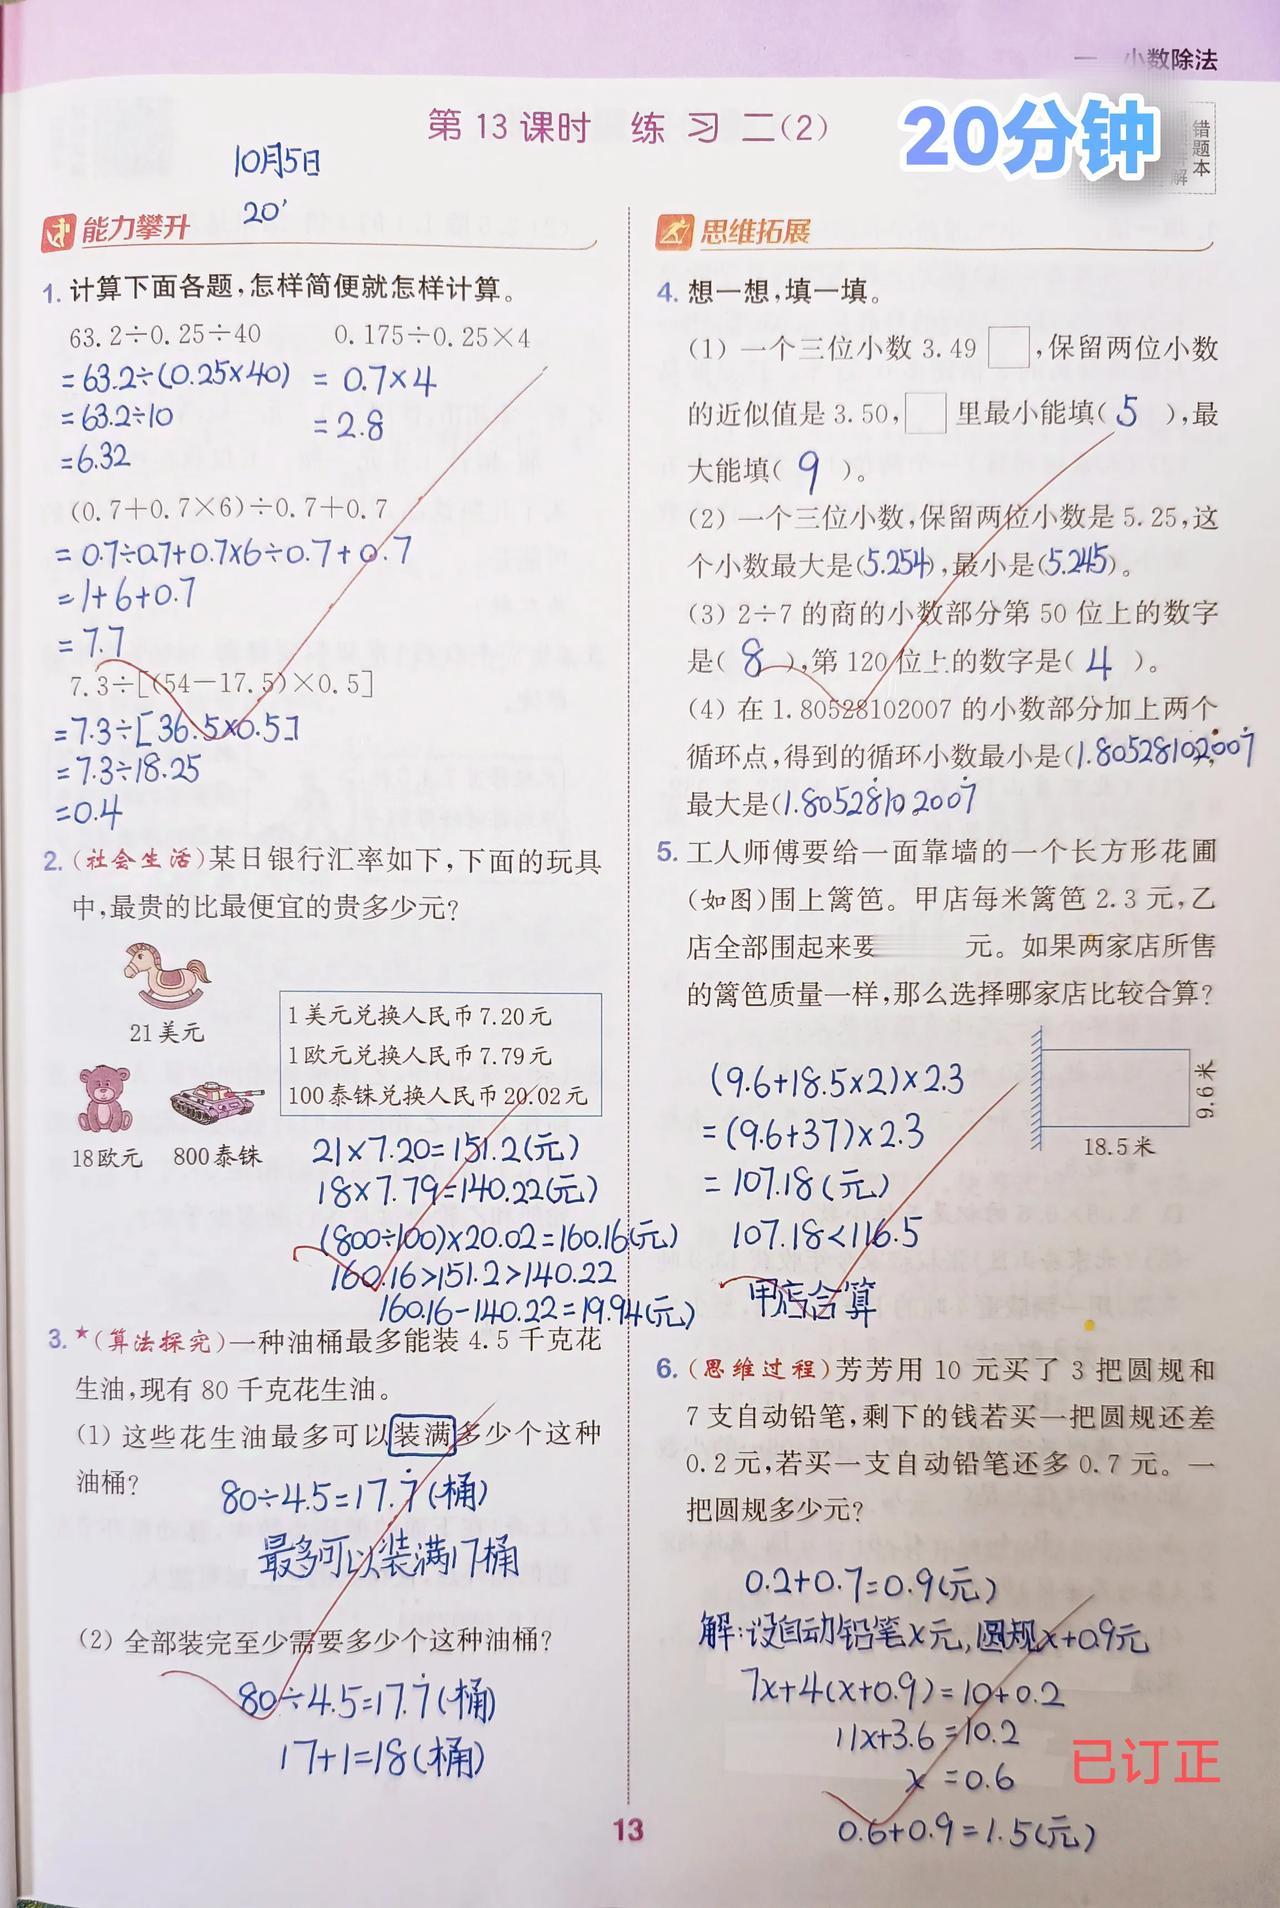 一 小数除法
第13课时 练 习 二(2)
20分钟
错题本
解
10月5日
20'
能力攀升
1. 计算下面各题,怎样简便就怎样计算。
63.2÷0.25÷40
=63.2÷(0.25×40)
=63.2÷10
=6.32
0.175÷0.25×4
=0.7×4
=2.8
(0.7+0.7×6)÷0.7+0.7
=0.7÷0.7+0.7×6÷0.7+0.7
=1+6+0.7
=7.7
7.3÷[(54-17.5)×0.5]
=7.3÷[36.5×0.5]
=7.3÷18.25
=0.4
2. (社会生活)某日银行汇率如下,下面的玩具
中,最贵的比最便宜的贵多少元?
21美元
18欧元
800泰铢
1美元兑换人民币7.20元
1欧元兑换人民币7.79元
100泰铢兑换人民币20.02元
21×7.20=151.2(元)
18×7.79=140.22(元)
(800÷100)×20.02=160.16(元)
160.16>151.2>140.22
160.16-140.22=19.94(元)
3. ★(算法探究)一种油桶最多能装4.5千克花
生油,现有80千克花生油。
(1) 这些花生油最多可以装满多少个这种
油桶?
80÷4.5=17.7̇(桶)
最多可以装满17桶
(2) 全部装完至少需要多少个这种油桶?
80÷4.5=17.7̇(桶)
17+1=18(桶)
思维拓展
4. 想一想,填一填。
(1) 一个三位小数3.49□,保留两位小数
的近似值是3.50,□里最小能填( 5 ),最
大能填( 9 )。
(2) 一个三位小数,保留两位小数是5.25,这
个小数最大是(5.254),最小是(5.245)。
(3) 2÷7的商的小数部分第50位上的数字
是( 8 ),第120位上的数字是( 4 )。
(4) 在1.80528102007的小数部分加上两个
循环点,得到的循环小数最小是(1.805281020̇07̇),
最大是(1.80528̇102007̇)。
5. 工人师傅要给一面靠墙的一个长方形花圃
(如图)围上篱笆。甲店每米篱笆2.3元,乙
店全部围起来要 元。如果两家店所售
的篱笆质量一样,那么选择哪家店比较合算?
9.6米
18.5米
(9.6+18.5×2)×2.3
=(9.6+37)×2.3
=107.18(元)
107.18<116.5
甲店合算
6. (思维过程)芳芳用10元买了3把圆规和
7支自动铅笔,剩下的钱若买一把圆规还差
0.2元,若买一支自动铅笔还多0.7元。一
把圆规多少元?
0.2+0.7=0.9(元)
解:设自动铅笔x元,圆规x+0.9元
7x+4(x+0.9)=10+0.2
11x+3.6=10.2
x=0.6
0.6+0.9=1.5(元)
已订正
13